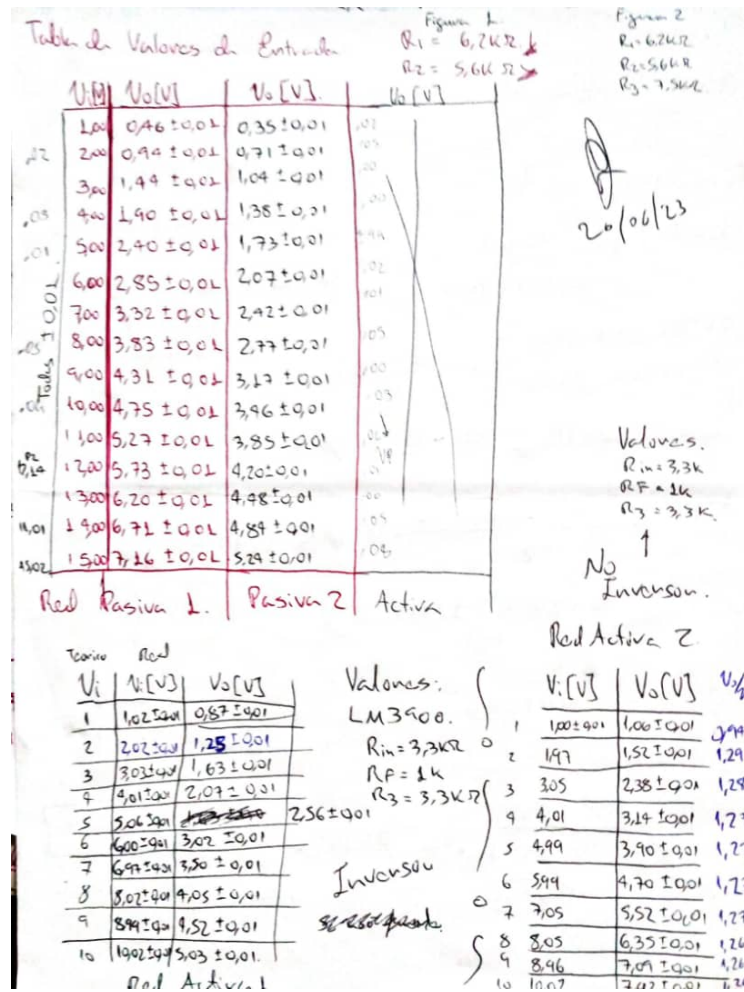 Tabla de Valores de Entrada
Figura 1.
R1 = 6,2KΩ
R2 = 5,6KΩ
Figura 2
R1=6,2KΩ
R2=5,6KΩ
R3=7,5KΩ
Vi[V] Vo[V] Vo[V]. Vo[V]
1,00 0,46 ±0,01 0,35±0,01
2,00 0,94 ±0,01 0,71±0,01
3,00 1,44 ±0,01 1,04±0,01
4,00 1,90 ±0,01 1,38±0,01
5,00 2,40 ±0,01 1,73±0,01
6,00 2,85 ±0,01 2,07±0,01
7,00 3,32 ±0,01 2,42±0,01
8,00 3,83 ±0,01 2,77±0,01
9,00 4,31 ±0,01 3,17±0,01
10,00 4,75 ±0,01 3,46±0,01
11,00 5,27 ±0,01 3,85±0,01
12,00 5,73 ±0,01 4,20±0,01
13,00 6,20 ±0,01 4,48±0,01
14,00 6,71 ±0,01 4,84±0,01
15,00 7,16 ±0,01 5,24±0,01
Todos ±0,01
Red Pasiva 1. Pasiva 2 Activa
20/06/23
Valores.
Rin=3,3k
RF=1k
R3=3,3k
No
Inversor.
Teorico Real
Vi Vi[V] Vo[V]
1 1,02±0,01 0,87±0,01
2 2,02±0,01 1,25±0,01
3 3,03±0,01 1,63±0,01
4 4,01±0,01 2,07±0,01
5 5,06±0,01 2,56±0,01
6 6,00±0,01 3,02±0,01
7 6,97±0,01 3,50±0,01
8 8,02±0,01 4,05±0,01
9 8,99±0,01 4,52±0,01
10 10,02±0,01 5,03±0,01.
Red Activa 1
Valores:
LM3900.
Rin=3,3KΩ
RF=1k
R3=3,3KΩ
Inversor
Red Activa 2
Vi[V] Vo[V]
1 1,00±0,01 1,06±0,01
2 1,97 1,52±0,01 1,29
3 3,05 2,38±0,01 1,28
4 4,01 3,14±0,01
5 4,99 3,90±0,01
6 5,99 4,70±0,01
7 7,05 5,52±0,01 1,27
8 8,05 6,35±0,01 1,26
9 8,96 7,09±0,01 1,26
10 10,02 7,92±0,01